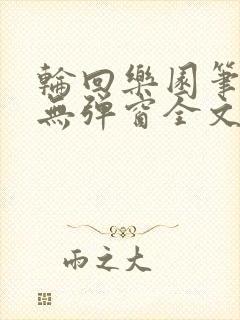 輪回樂園筆
無彈窗全文
雨之大